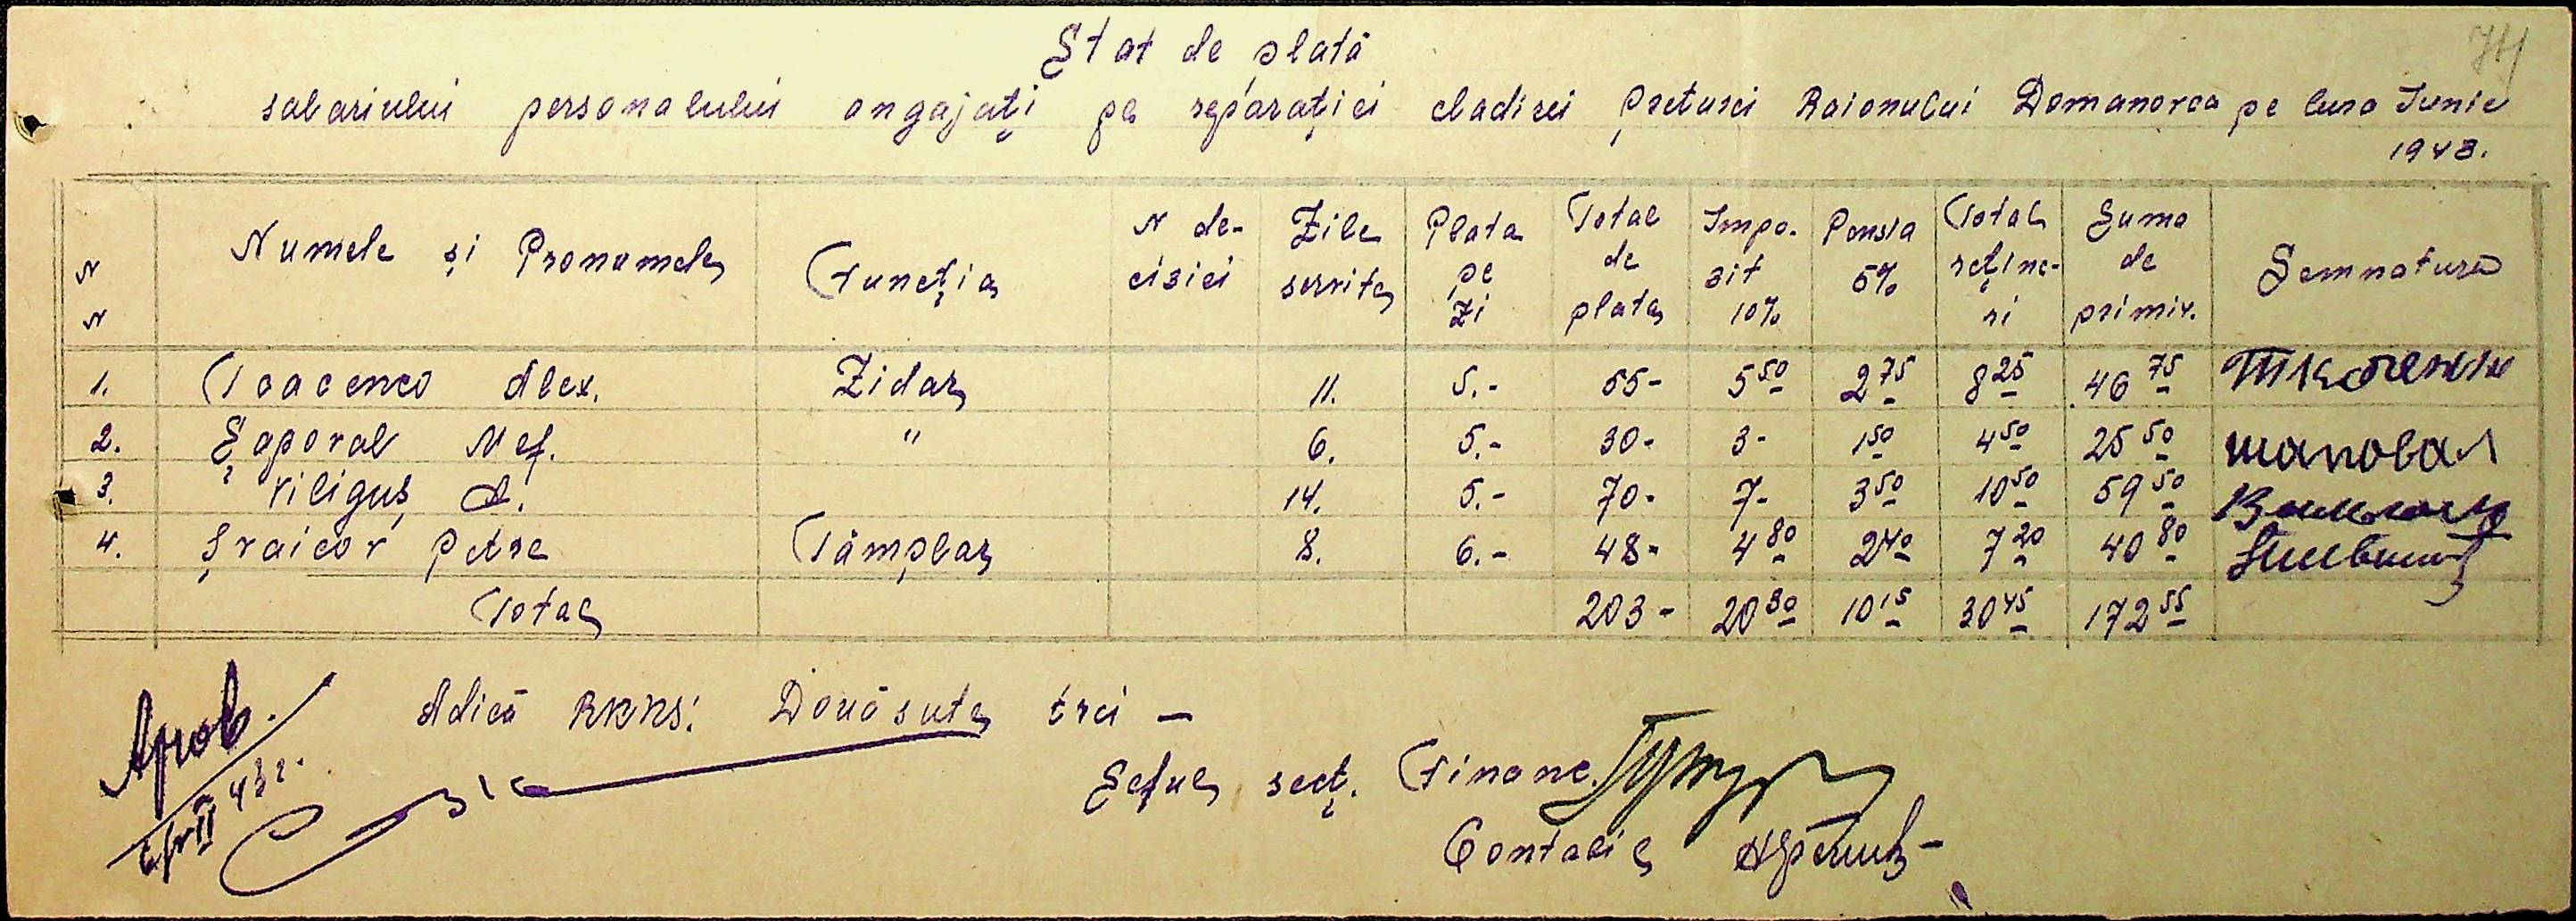 74
Stat de plată
salariului personalului angajați pe reparației cladirei Preturei Raionului Domanovca pe luna Iunie
1943.
N N | Numele și Pronumele | Funcția | N de-ciziei | Zile servite | Plata pe zi | Total de plata | Impo-zit 10% | Pensia 5% | Total reține-ri | Suma de primir. | Semnatura
1. | Tcacenco Alex. | Zidar | 11. | 5.- | 55- | 5 50 | 2 75 | 8 25 | 46 75 | Ткаченко
2. | Șapoval Nef. | " | 6. | 5.- | 30- | 3- | 1 50 | 4 50 | 25 50 | шаповал
3. | Viliguș A. | 14. | 5.- | 70- | 7- | 3 50 | 10 50 | 59 50
4. | Petre | Tâmplar | 8. | 6.- | 48- | 4 80 | 2 40 | 7 20 | 40 80
Total | 203- | 20 30 | 10 15 | 30 45 | 172 55
Aprob.
Adică RKKS: Două sute trei —
Șeful secț. Financ.
Contabil